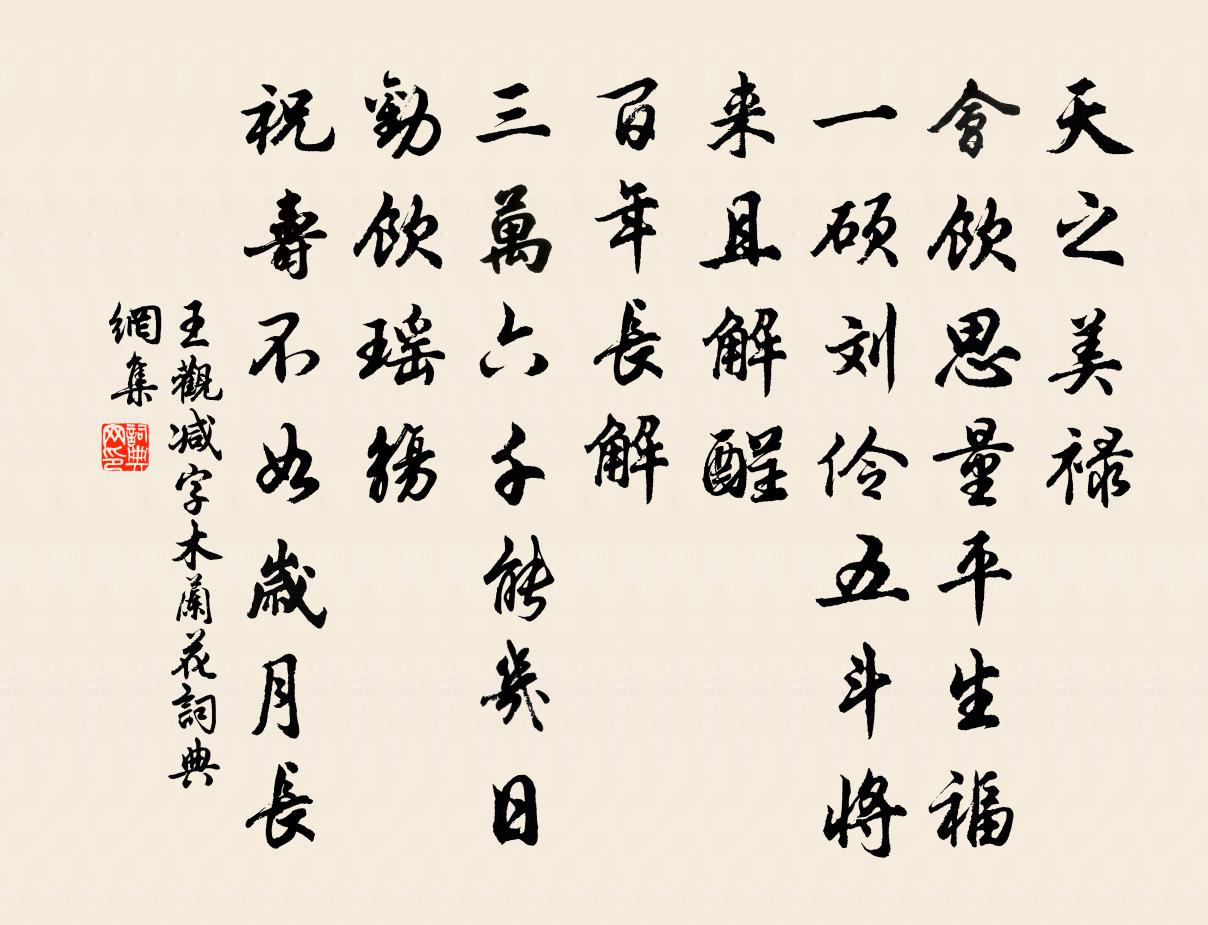 天之美禄
會飲思量平生福
一硕刘伶五斗將
来且解酲
百年長解
三萬六千能幾日
勸飲瑶觴
祝壽不如歲月長
王觀减字木蘭花詞典
網集
詞典网印